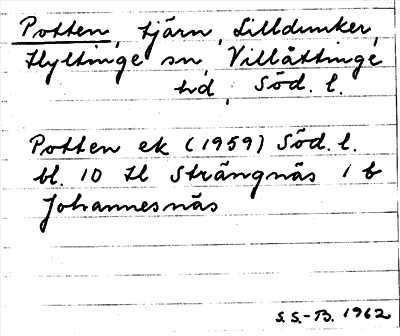 Potten, tjärn, Lilldunker,
Hyltinge sn, Villåttinge
hd, Söd. l.
Potten ek (1959) Söd. l.
bl. 10 til Strängnäs 1 b
Johannesnäs
S.S.-B. 1962